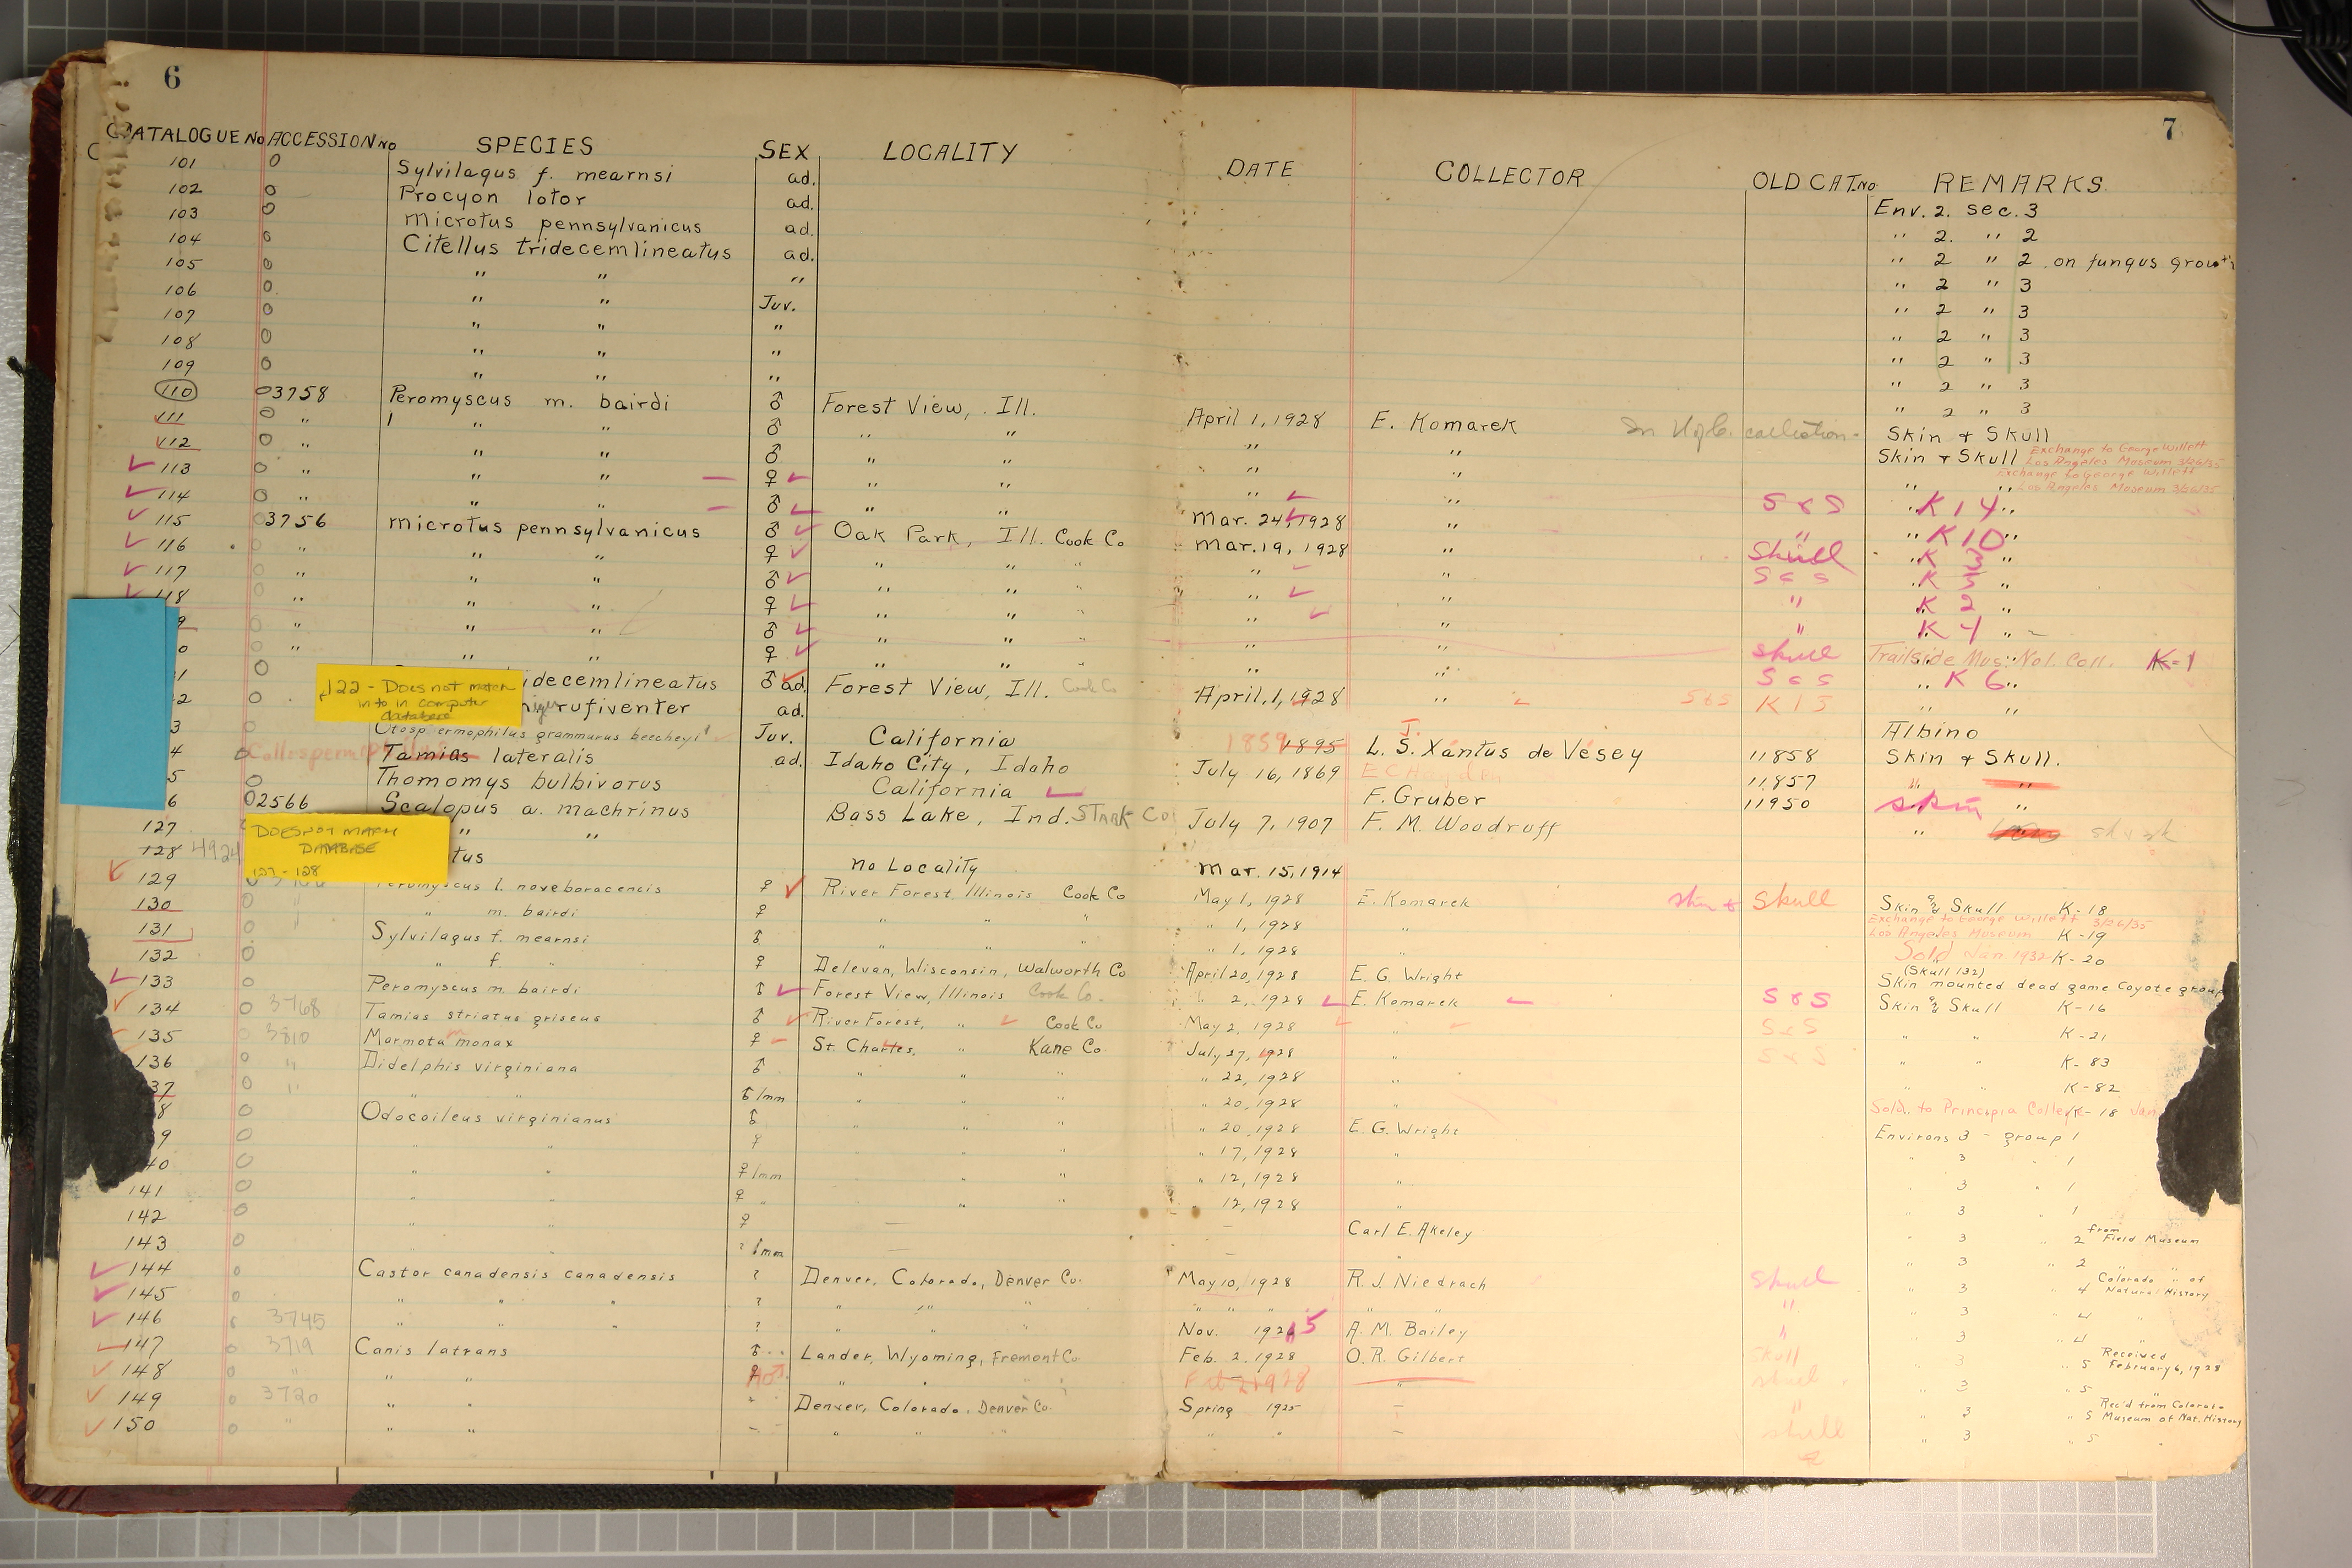 6
CATALOGUE No ACCESSION No SPECIES SEX LOCALITY
101 0 Sylvilagus f. mearnsi ad.
102 0 Procyon lotor ad.
103 0 Microtus pennsylvanicus ad.
104 0 Citellus tridecemlineatus ad.
105 0 " " "
106 0 " " Juv.
107 0 " " "
108 0 " " "
109 0 " " "
110 0 3758 Peromyscus m. bairdi ♂ Forest View, Ill.
111 0 " " " ♂ " "
112 0 " " " ♂ " "
113 0 " " " ♀ " "
114 0 " " " ♂ " "
115 0 3756 Microtus pennsylvanicus ♂ Oak Park, Ill. Cook Co
116 0 " " " ♀ " " "
117 0 " " " ♂ " " "
118 0 " " " ♀ " " "
9 0 " " " ♂ " " "
0 0 " " " ♀ " "
1 0 idecemlineatus ♂ ad. Forest View, Ill. Cook Co
122 - Does not match
info in computer
database
2 0 rufiventer ad.
3 0 Otospermophilus grammurus beecheyi Juv. California
4 0 Tamias lateralis ad. Idaho City, Idaho
5 0 Thomomys bulbivorus California
6 0 2566 Scalopus a. machrinus Bass Lake, Ind. Stark Co
127 " "
DOES NOT MATCH
DATABASE
127 - 128
128 4924 tus no Locality
129 Peromyscus l. noveboracencis ♀ River Forest, Illinois Cook Co
130 0 " " m. bairdi ♀ " " "
131 0 Sylvilagus f. mearnsi ♂ " " "
132 0 " f. " ♀ Delevan, Wisconsin, Walworth Co
133 0 Peromyscus m. bairdi ♂ Forest View, Illinois Cook Co.
134 0 3768 Tamias striatus griseus ♂ River Forest, " Cook Co
135 0 3810 Marmota monax ♀ St. Charles, " Kane Co
136 0 " Didelphis virginiana ♂ " " "
37 0 " " " ♂ Imm " " "
8 0 Odocoileus virginianus ♂ " " "
9 0 " " ♀ " " "
40 0 " " ♀ Imm " "
141 0 " " ♀ " " "
142 0 " " ♀ —
143 0 " " ? Imm —
144 0 Castor canadensis canadensis ? Denver, Colorado, Denver Co.
145 0 " " " ? " " "
146 0 3745 " " " ? " " "
147 0 3719 Canis latrans ♂ Lander, Wyoming, Fremont Co
148 0 " " " " " "
149 0 3720 " " " Denver, Colorado, Denver Co.
150 0 " " " — " " "
7
DATE COLLECTOR OLD CAT. No REMARKS
Env. 2. Sec. 3
" 2. " 2
" 2 " 2 on fungus growth
" 2 " 3
" 2 " 3
" 2 " 3
" 2 " 3
" 2 " 3
" 2 " 3
April 1, 1928 E. Komarek collection Skin & Skull
" " Skin & Skull Exchange to George Willett
Los Angeles Museum 3/26/35
" " " " Exchange to George Willett
Los Angeles Museum 3/26/35
" " S & S " K 14 "
Mar. 24, 1928 " " " K 10 "
Mar. 19, 1928 " Skull " K 3 "
" " S & S " K 5 "
" " " " K 2 "
" " " " K 4 "
" " skull Trailside Mus. Nat. Coll. K-1
" " S & S " K 6 "
April 1, 1928 " S&S K13 " "
Albino
1859 1895 L. S. J. Xántus de Vesey 11858 Skin & Skull.
July 16, 1869 E C Hayden 11857 " "
F. Gruber 11950 skin "
July 7, 1907 F. M. Woodruff "
Mar. 15, 1914
May 1, 1928 E. Komarek skin & skull Skin & Skull K-18
" 1, 1928 " Exchange to George Willett 3/26/35
Los Angeles Museum K-19
" 1, 1928 " Sold Jan. 1932 K-20
April 20, 1928 E. G. Wright (Skull 132)
Skin mounted dead game Coyote group
" 2, 1928 E. Komarek S & S Skin & Skull K-16
May 2, 1928 " S&S " " K-21
July 27, 1928 " S&S " " K-83
" 22, 1928 " " " K-82
" 20, 1928 " Sold. to Principia College K-18 Jan
" 20, 1928 E. G. Wright Environs 3 - group 1
" 17, 1928 " " 3 " 1
" 12, 1928 " " 3 " 1
" 12, 1928 " " 3 " 1
— Carl E. Akeley " 3 " 2 from Field Museum
— " " 3 " 2 " "
May 10, 1928 R. J. Niedrach skull " 3 " 4 Colorado " of
Natural History
" " " " " " " 3 " 4 "
Nov. 1926 5 A. M. Bailey " " 3 " 4 "
Feb. 2, 1928 O. R. Gilbert skull " 3 " 5 Received
February 6, 1928
Feb 2 1928 " skull " 3 " 5 "
Spring 1925 — " " 3 " 5 Rec'd from Colorado
Museum of Nat. History
" " — skull " 3 " 5 "